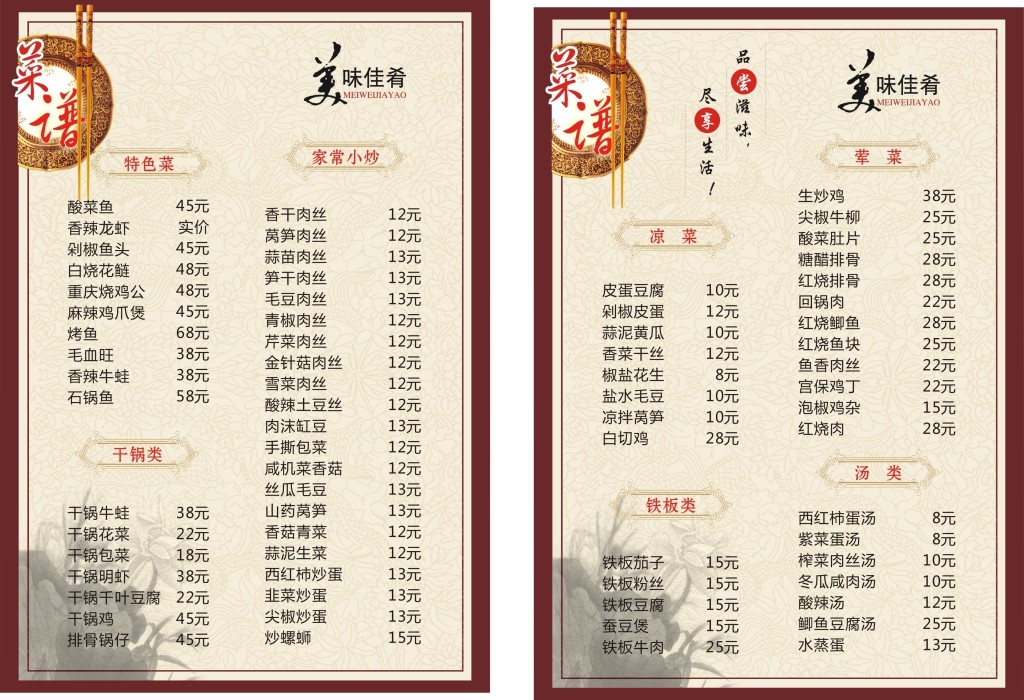 菜谱
美味佳肴
MEIWEIJIAYAO
特色菜
酸菜鱼 45元
香辣龙虾 实价
剁椒鱼头 45元
白烧花鲢 48元
重庆烧鸡公 48元
麻辣鸡爪煲 45元
烤鱼 68元
毛血旺 38元
香辣牛蛙 38元
石锅鱼 58元
干锅类
干锅牛蛙 38元
干锅花菜 22元
干锅包菜 18元
干锅明虾 38元
干锅千叶豆腐 22元
干锅鸡 45元
排骨锅仔 45元
家常小炒
香干肉丝 12元
莴笋肉丝 12元
蒜苗肉丝 13元
笋干肉丝 13元
毛豆肉丝 13元
青椒肉丝 12元
芹菜肉丝 12元
金针菇肉丝 12元
雪菜肉丝 12元
酸辣土豆丝 12元
肉沫缸豆 13元
手撕包菜 12元
咸机菜香菇 12元
丝瓜毛豆 13元
山药莴笋 13元
香菇青菜 12元
蒜泥生菜 12元
西红柿炒蛋 13元
韭菜炒蛋 13元
尖椒炒蛋 13元
炒螺蛳 15元
菜谱
品尝滋味，
尽享生活！
美味佳肴
MEIWEIJIAYAO
凉 菜
皮蛋豆腐 10元
剁椒皮蛋 12元
蒜泥黄瓜 10元
香菜干丝 12元
椒盐花生 8元
盐水毛豆 10元
凉拌莴笋 10元
白切鸡 28元
铁板类
铁板茄子 15元
铁板粉丝 15元
铁板豆腐 15元
蚕豆煲 15元
铁板牛肉 25元
荤 菜
生炒鸡 38元
尖椒牛柳 25元
酸菜肚片 25元
糖醋排骨 28元
红烧排骨 28元
回锅肉 22元
红烧鲫鱼 28元
红烧鱼块 25元
鱼香肉丝 22元
宫保鸡丁 22元
泡椒鸡杂 15元
红烧肉 28元
汤 类
西红柿蛋汤 8元
紫菜蛋汤 8元
榨菜肉丝汤 10元
冬瓜咸肉汤 10元
酸辣汤 12元
鲫鱼豆腐汤 25元
水蒸蛋 13元